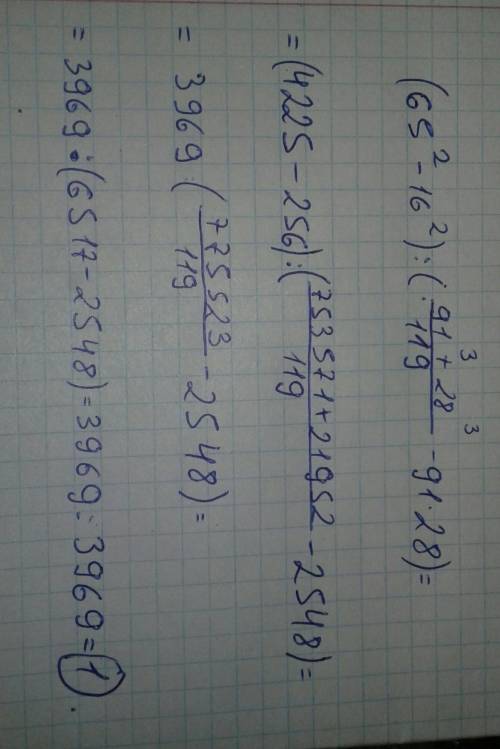 (65² - 16²) : (91³ + 28³ / 119 - 91 · 28) =
= (4225 - 256) : (753571 + 21952 / 119 - 2548) =
= 3969 : (775523 / 119 - 2548) =
= 3969 : (6517 - 2548) = 3969 : 3969 = 1.